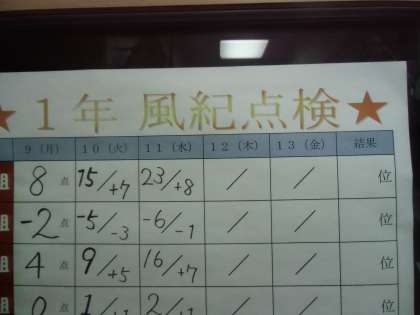 ★1年 風紀点検★
9(月) 10(火) 11(水) 12(木) 13(金) 結果
組 8点 15/+7 23/+8 / / 位
組 -2点 -5/-3 -6/-1 / / 位
組 4点 9/+5 16/+7 / / 位